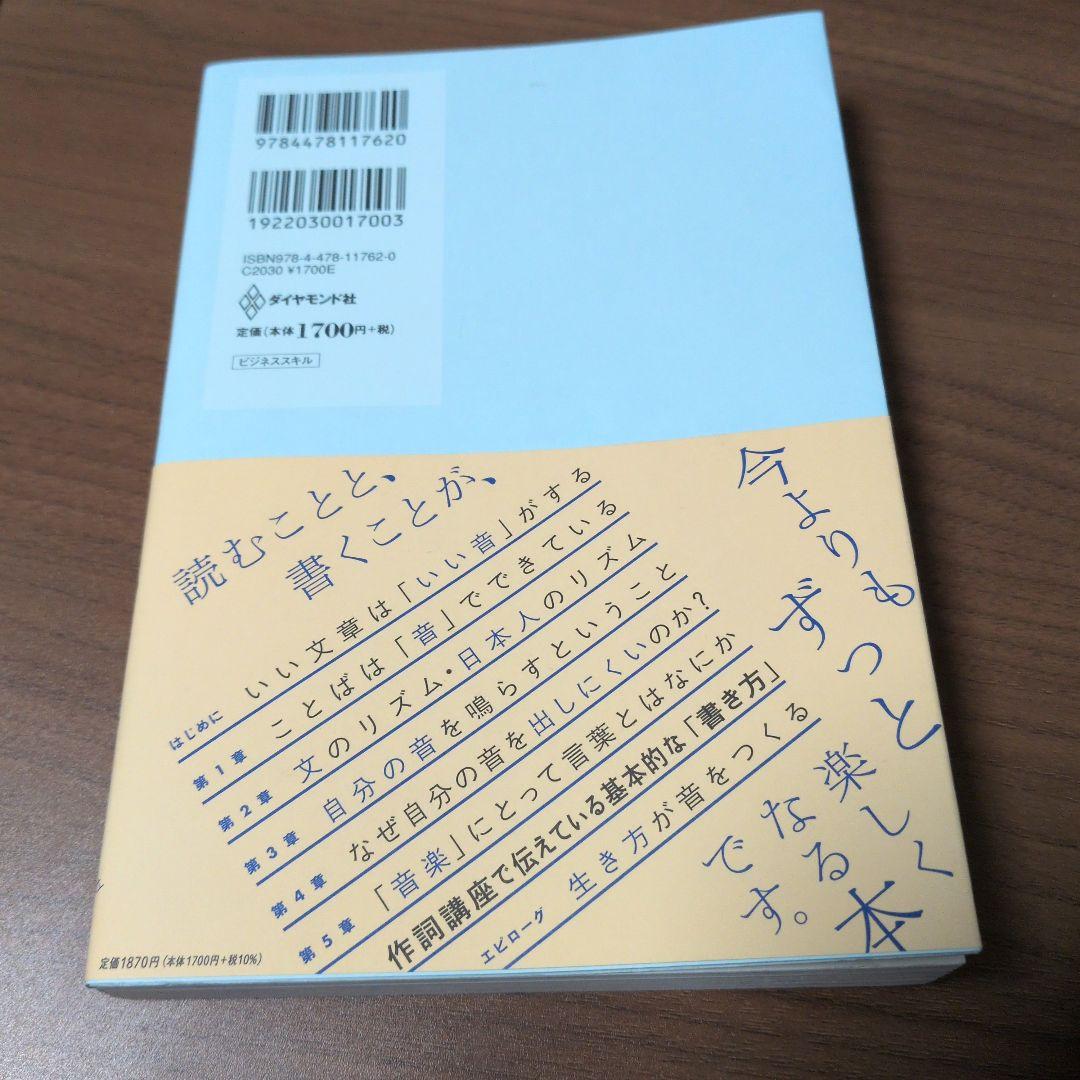 9784478117620
1922030017003
ISBN978-4-478-11762-0
C2030 ¥1700E
ダイヤモンド社
定価(本体1700円+税)
ビジネススキル
読むことと、
書くことが、
今よりも
ずっと
楽しく
なる本
です。
はじめに いい文章は「いい音」がする
第1章 ことばは「音」でできている
第2章 文のリズム・日本人のリズム
第3章 自分の音を鳴らすということ
第4章 なぜ自分の音を出しにくいのか?
第5章 「音楽」にとって言葉とはなにか
作詞講座で伝えている基本的な「書き方」
エピローグ 生き方が音をつくる
定価1870円(本体1700円+税10%)